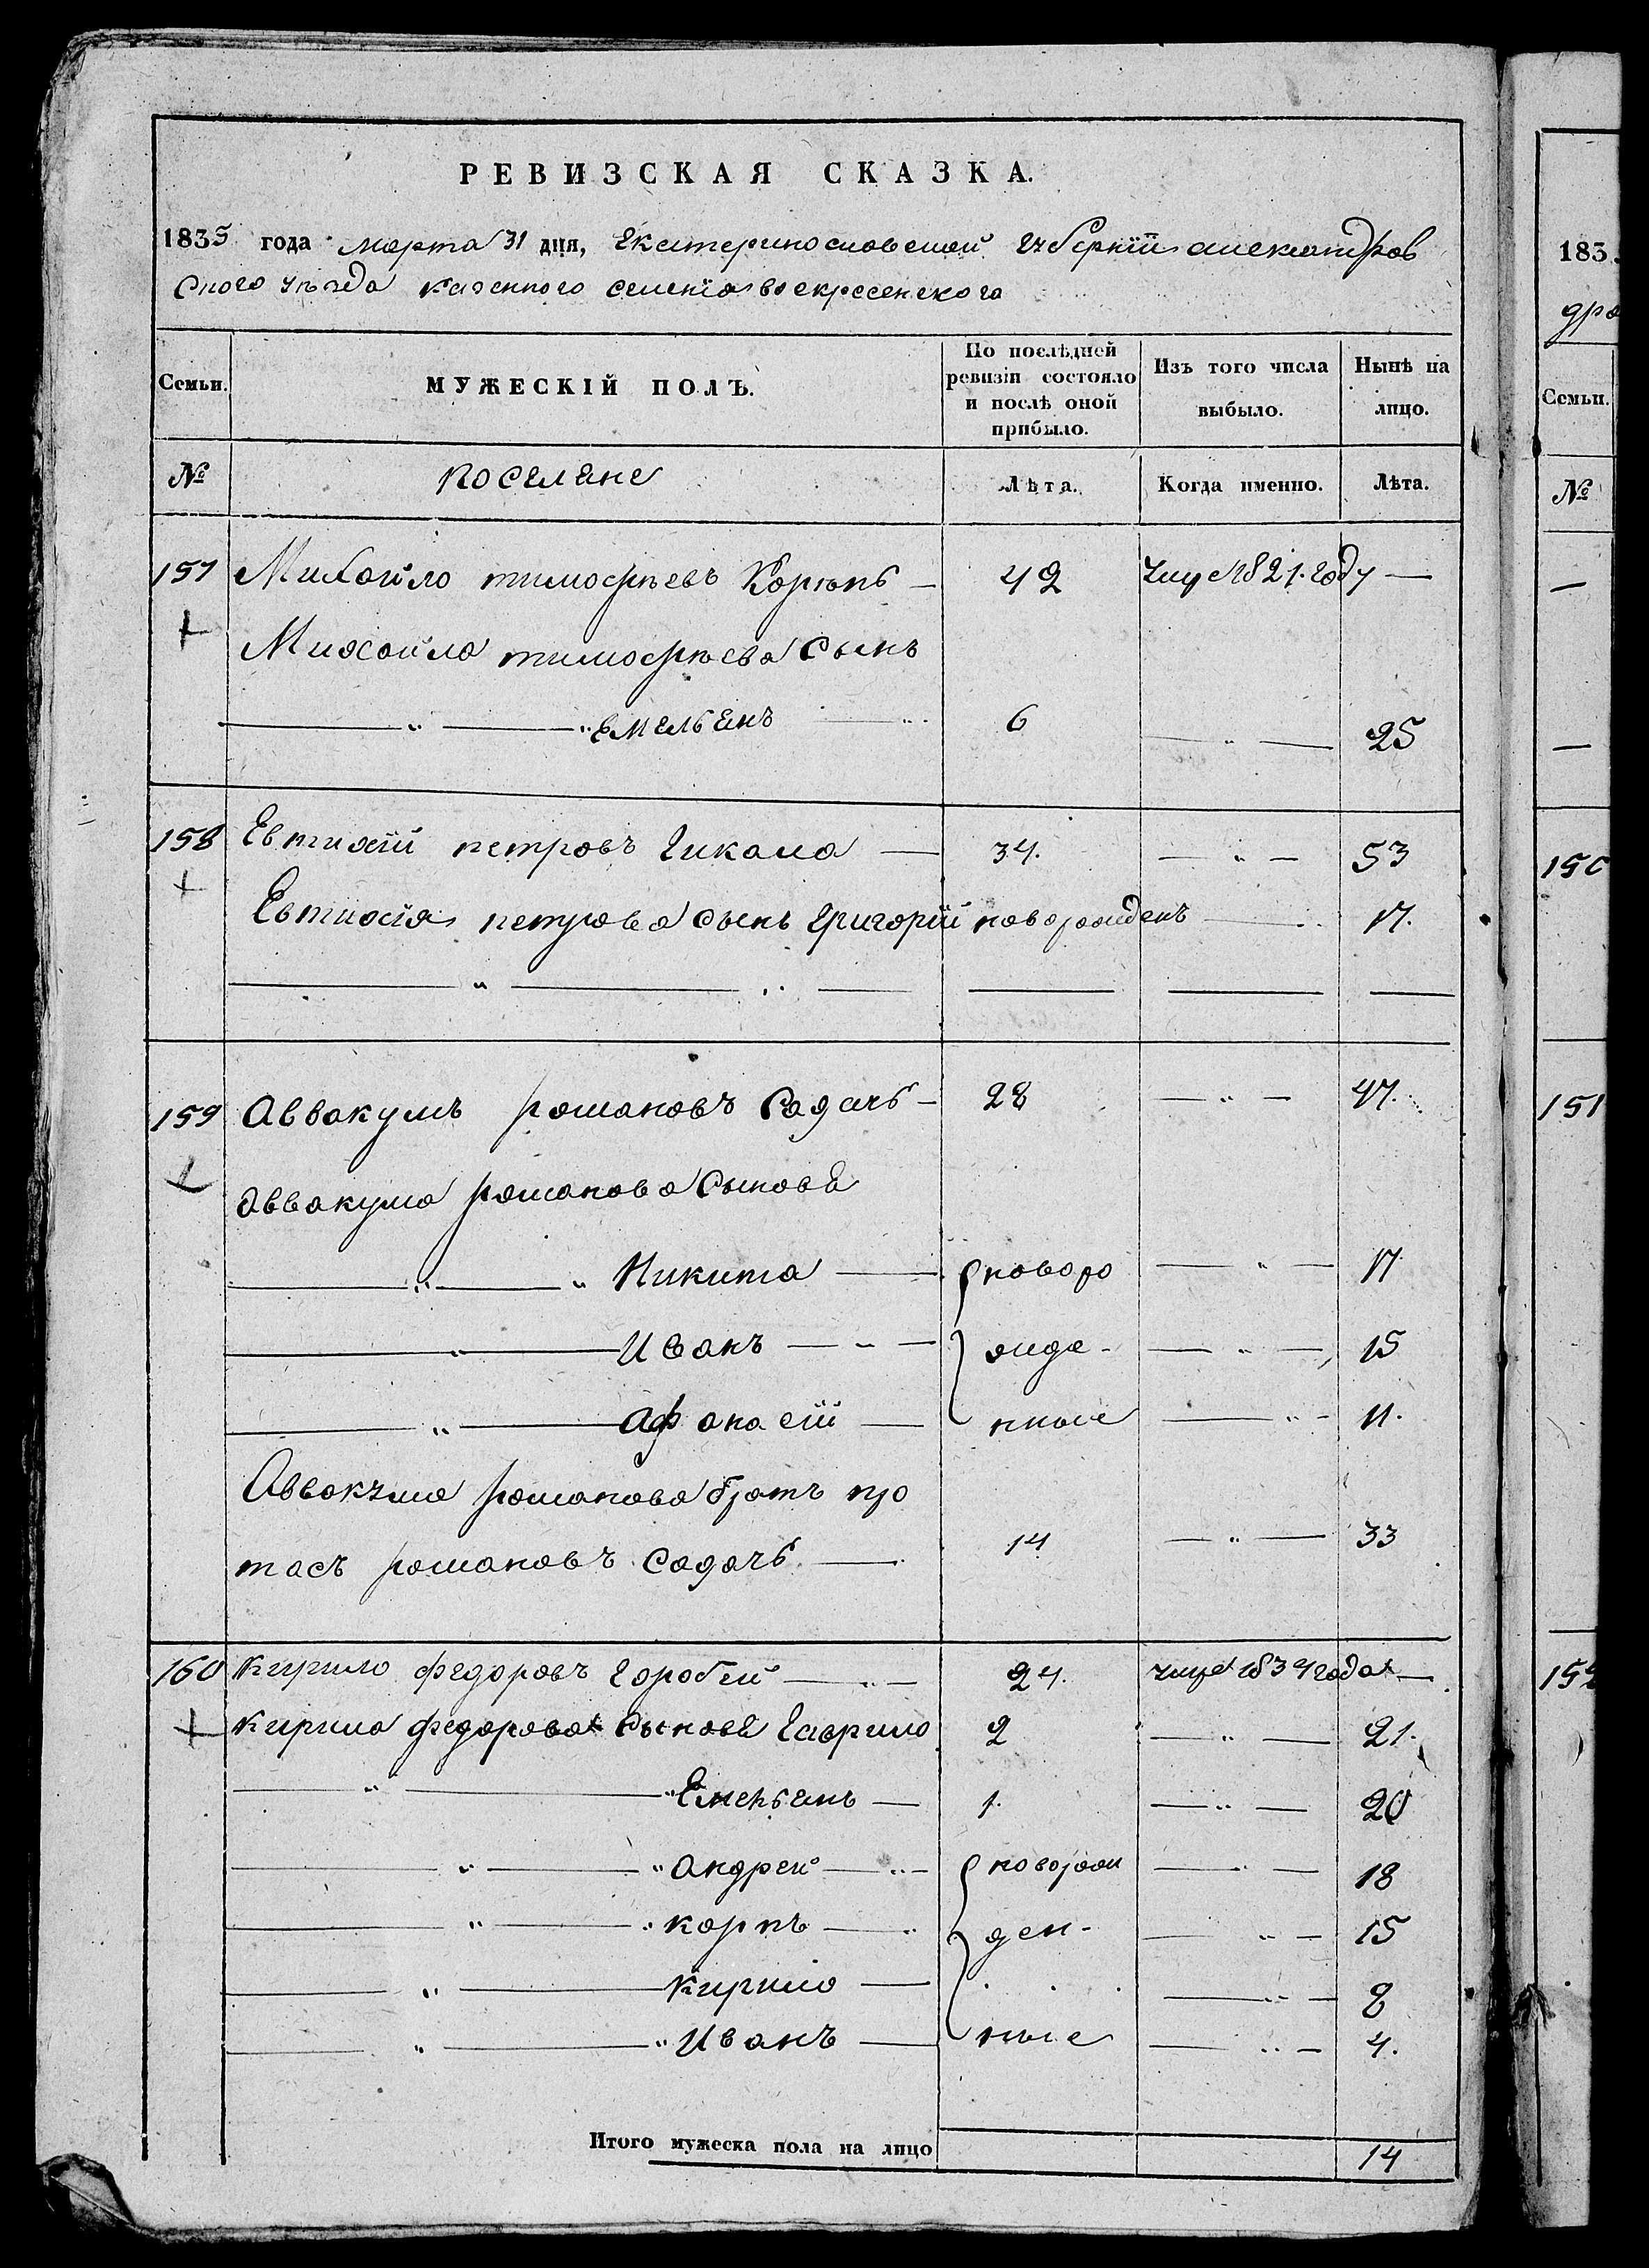 РЕВИЗСКАЯ СКАЗКА.
1835 года марта 31 дня, Екатеринославской губернїи александров
ского уѣзда казенного селенїя воскресенского
Семьи. МУЖЕСКІЙ ПОЛЪ. По послѣдней ревизіи состояло и послѣ оной прибыло. Изъ того числа выбыло. Нынѣ на лицо.
№ поселяне Лѣта. Когда именно. Лѣта.
157 Михайло тимофѣевъ 42 уме 1821. году —
Михайла тимофѣева сынъ
емельянъ 6 25
158 Евтихїй петровъ Гикало — 34. 53
Евтихїя петрова сынъ григорїй новорожденъ 17.
159 аввакумъ романовъ Садачь — 28 47.
аввакума романова сыновя
Никита — новоро 17
Иванъ — жде- 15
афанасїй — нные 11.
Аввакума романова братъ про
тасъ романовъ Садачь 14 33
160 кирило федоровъ Горобей 24. уме 1834 года —
кирила федорова сыновя Гаврило 2 21.
Емельянъ — 1. 20
андрей новорож 18
карпъ ден- 15
кирило 8
Иванъ — ные 4.
Итого мужеска пола на лицо 14
183
дро
Семьи.
№
150
151